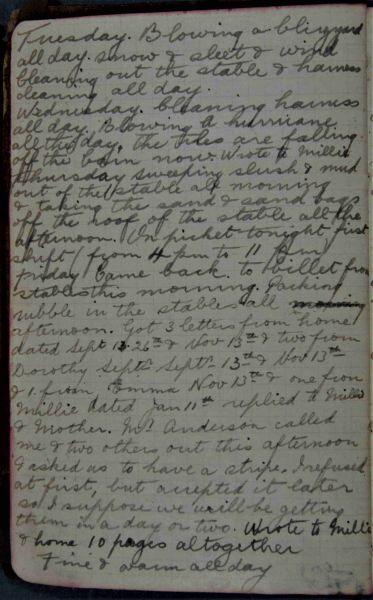 Tuesday. Blowing a blizzard
all day. snow & sleet & wind
cleaning out the stable & harness
cleaning all day.
Wednesday. Cleaning harness
all day. Blowing a hurricane
all the day, the tiles are falling
off the barn now. Wrote to Millie
Thursday sweeping slush & mud
out of the stable all morning
& taking the sand & sand bags
off the roof of the stable all the
afternoon. On picket tonight first
shift / from 4 pm to 11 pm
Friday Came back to billet from
stables this morning. Packing
rubble in the stables all morning
afternoon. Got 3 letters from home
dated Sept 26th & Nov 13th & two from
Dorothy Septr Septr 13th & Nov 13th
& 1 from Emma Nov 13th & one from
Millie dated Jan 11th replied to Millie
& Mother. Mr Anderson called
me & two others out this afternoon
& asked us to have a stripe. I refused
at first, but accepted it later
so I suppose we will be getting
them in a day or two. Wrote to Millie
& home 10 pages altogether
Fine & warm all day